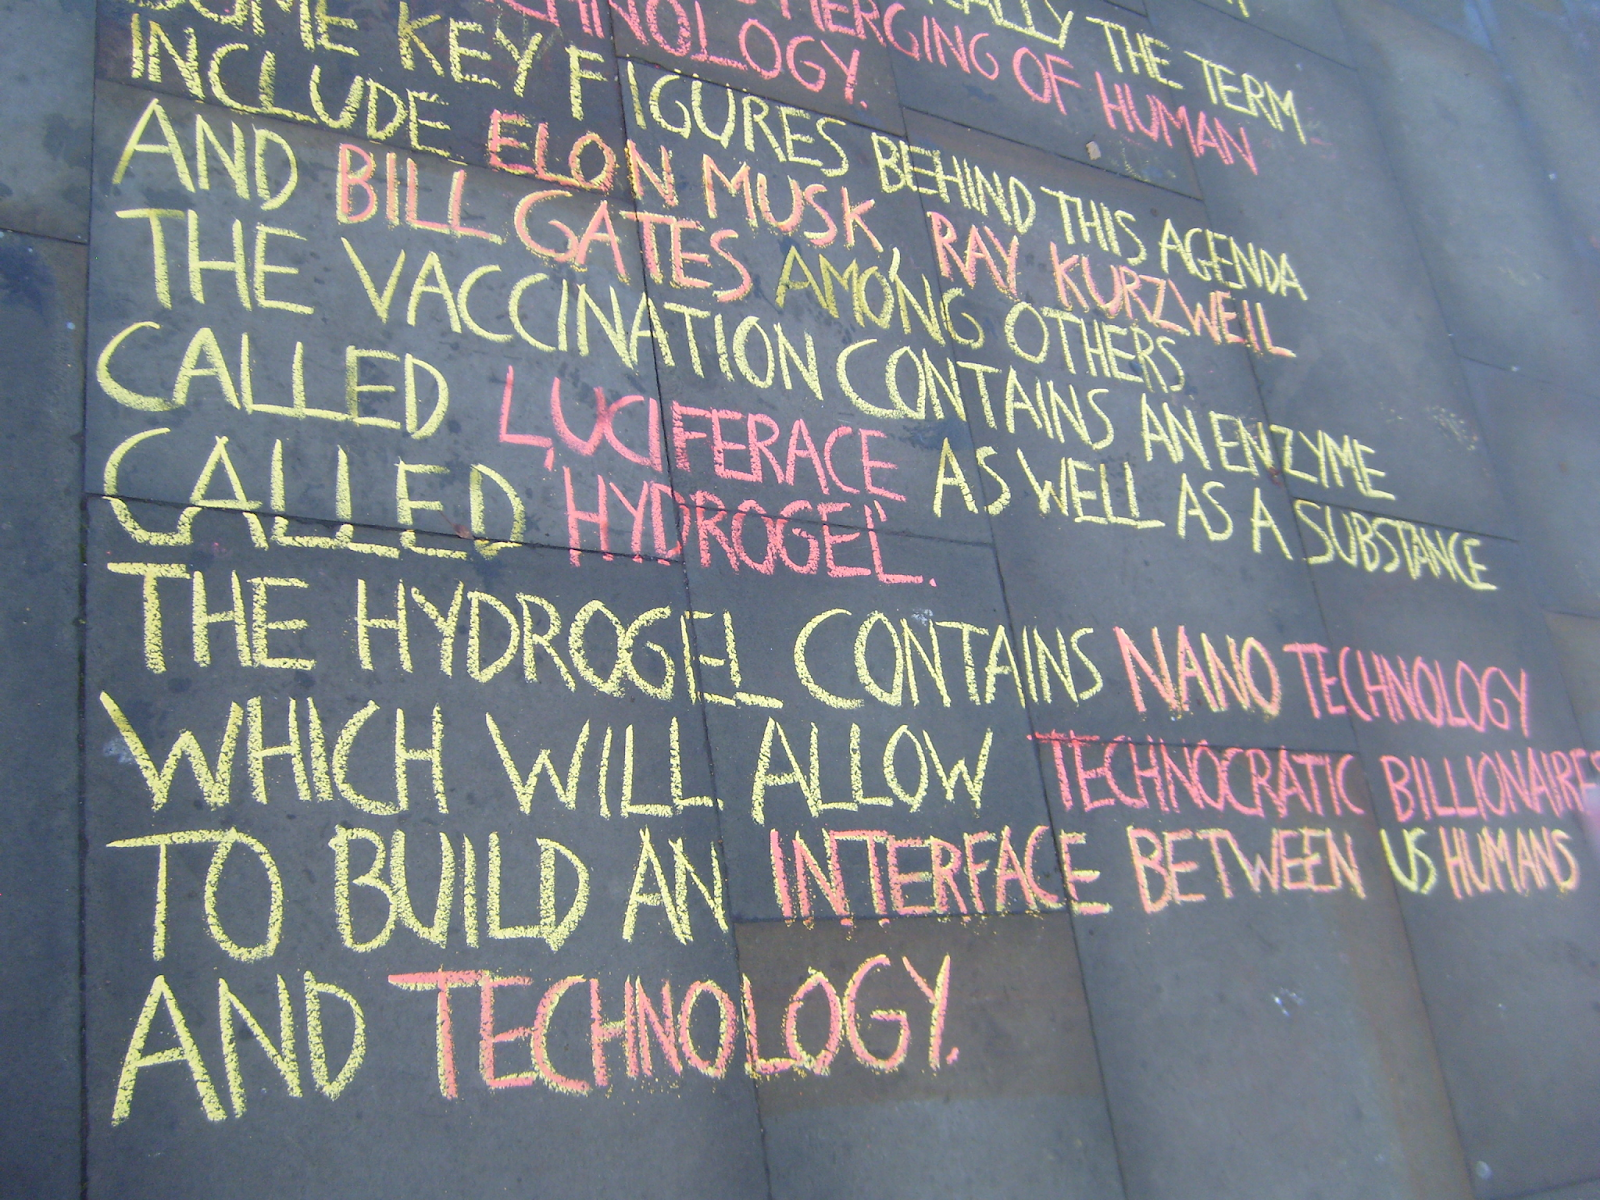 THE TERM
MERGING OF HUMAN
HNOLOGY.
SOME KEY FIGURES BEHIND THIS AGENDA
INCLUDE ELON MUSK, RAY KURZWEIL
AND BILL GATES AMONG OTHERS
THE VACCINATION CONTAINS AN ENZYME
CALLED LUCIFERACE AS WELL AS A SUBSTANCE
CALLED 'HYDROGEL'.
THE HYDROGEL CONTAINS NANO TECHNOLOGY
WHICH WILL ALLOW TECHNOCRATIC BILLIONAIRES
TO BUILD AN INTERFACE BETWEEN US HUMANS
AND TECHNOLOGY.